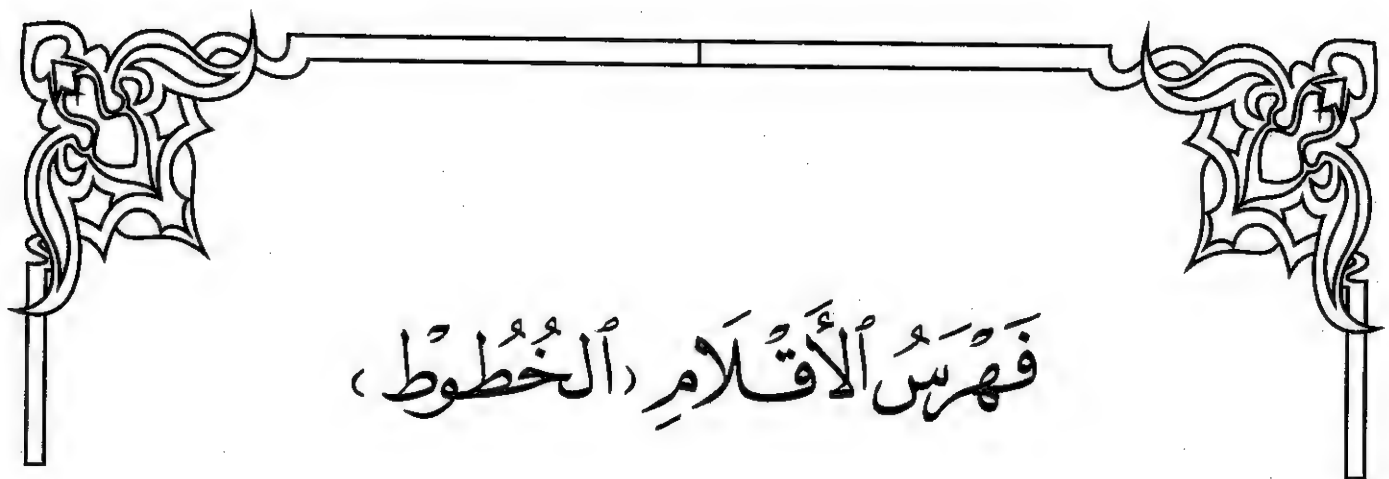 فَهْرَسُ ٱلْأَقْلَامِ (ٱلْخُطُوْطِ)